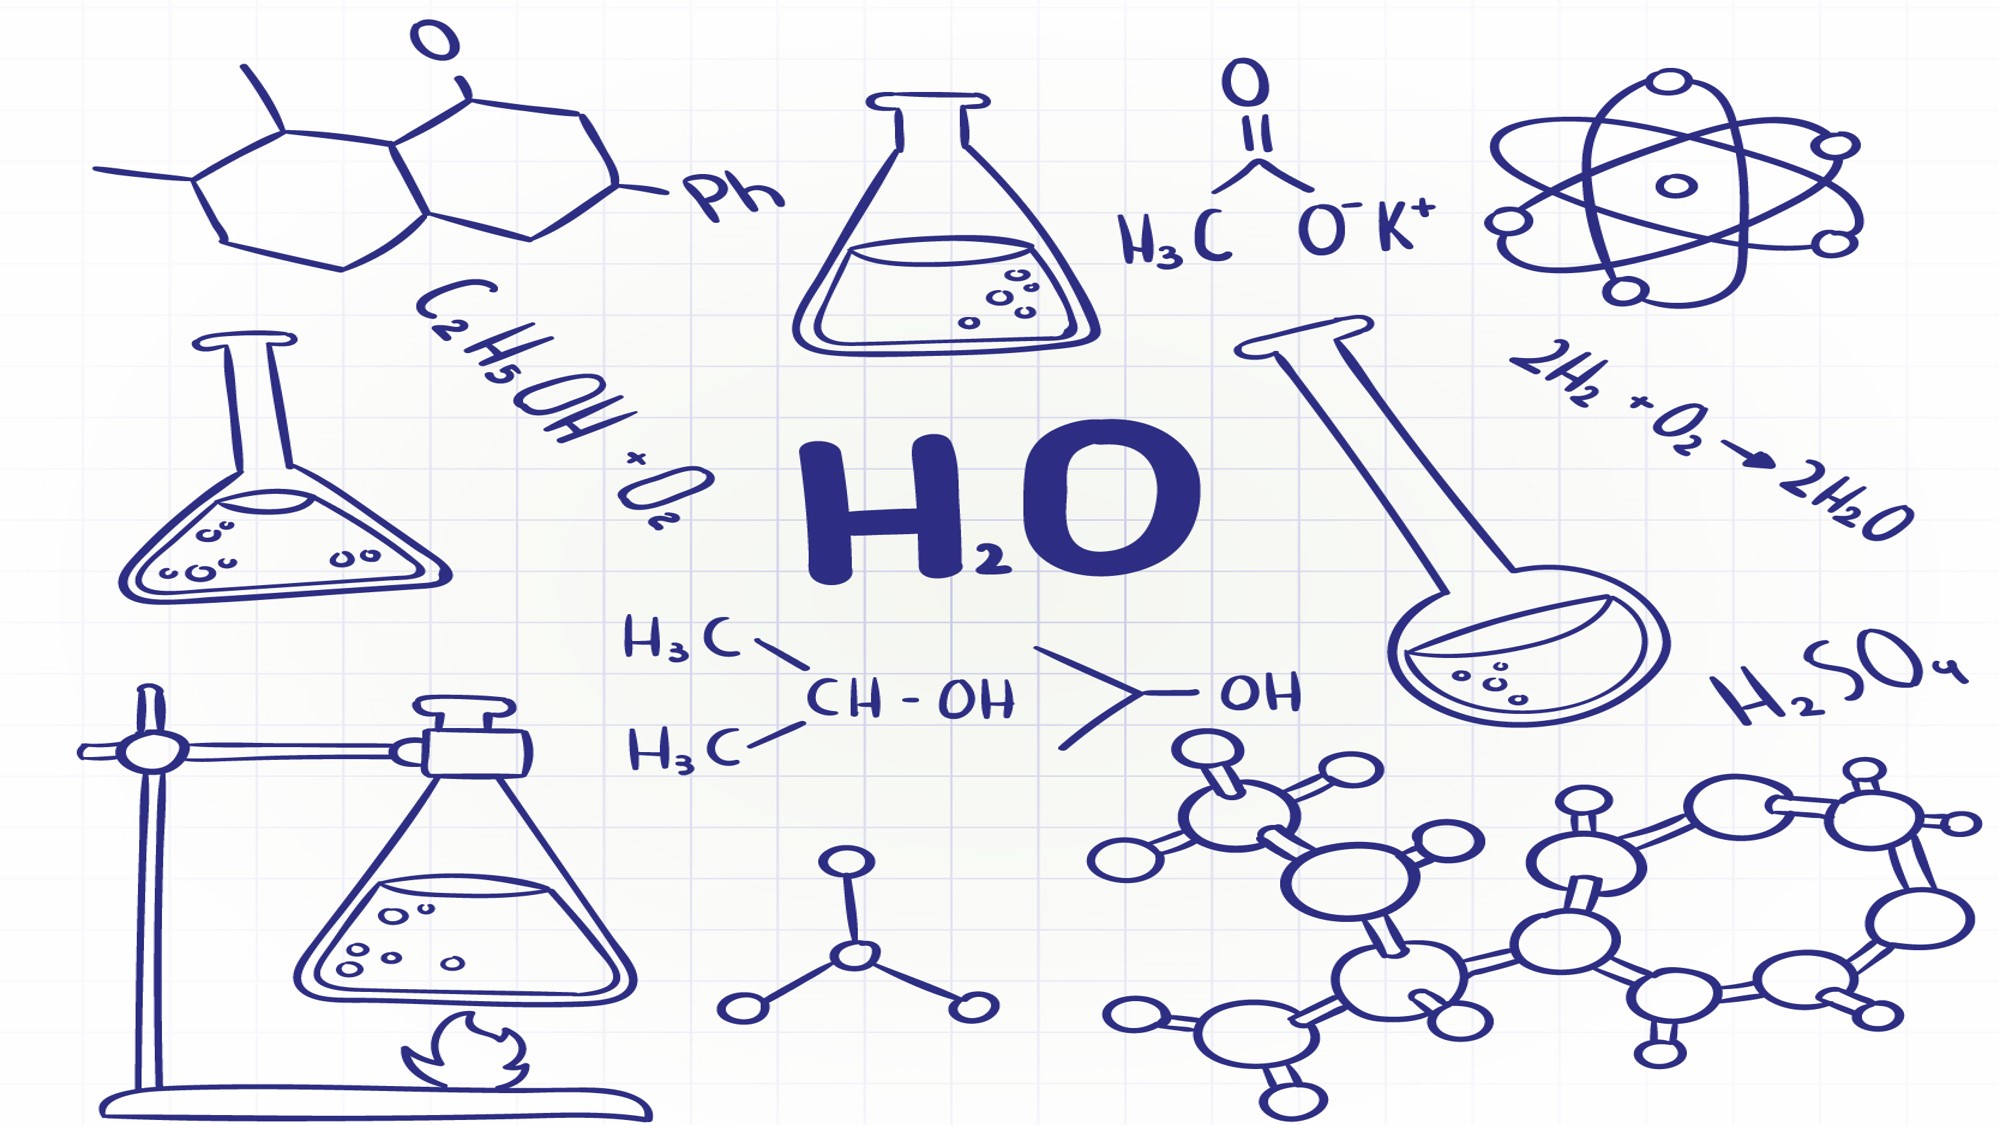 O
Ph
O
H₃C O⁻ K⁺
C₂H₅OH + O₂
2H₂ + O₂ → 2H₂O
H₂O
H₃C
CH - OH
H₃C
OH
H₂SO₄